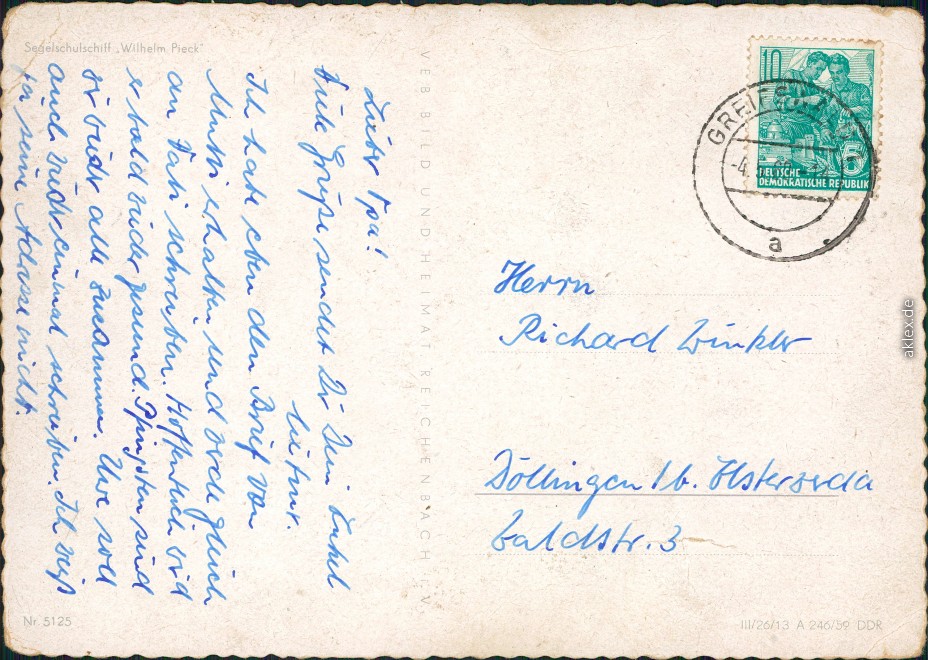 Segelschulschiff „Wilhelm Pieck"
Lieber Opa!
Viele Grüße sendet Dir Dein Enkel
Ich habe eben den Brief von
Mutti erhalten und will gleich
an Vati schreiben. Hoffentlich wird
er bald wieder gesund. Pfingsten sind
wir wieder alle zusammen. Uwe soll
auch wieder einmal schreiben. Ich weiß
ja seine Adresse nicht.
Nr. 5125
VEB BILD UND HEIMAT REICHENBACH I. V.
10
5
DEUTSCHE
DEMOKRATISCHE REPUBLIK
GREIFSWALD
-4.
a
Herrn
Richard Winkler
Döllingen b. Elsterwerda
Waldstr. 3
III/26/13 A 246/59 DDR
aklex.de